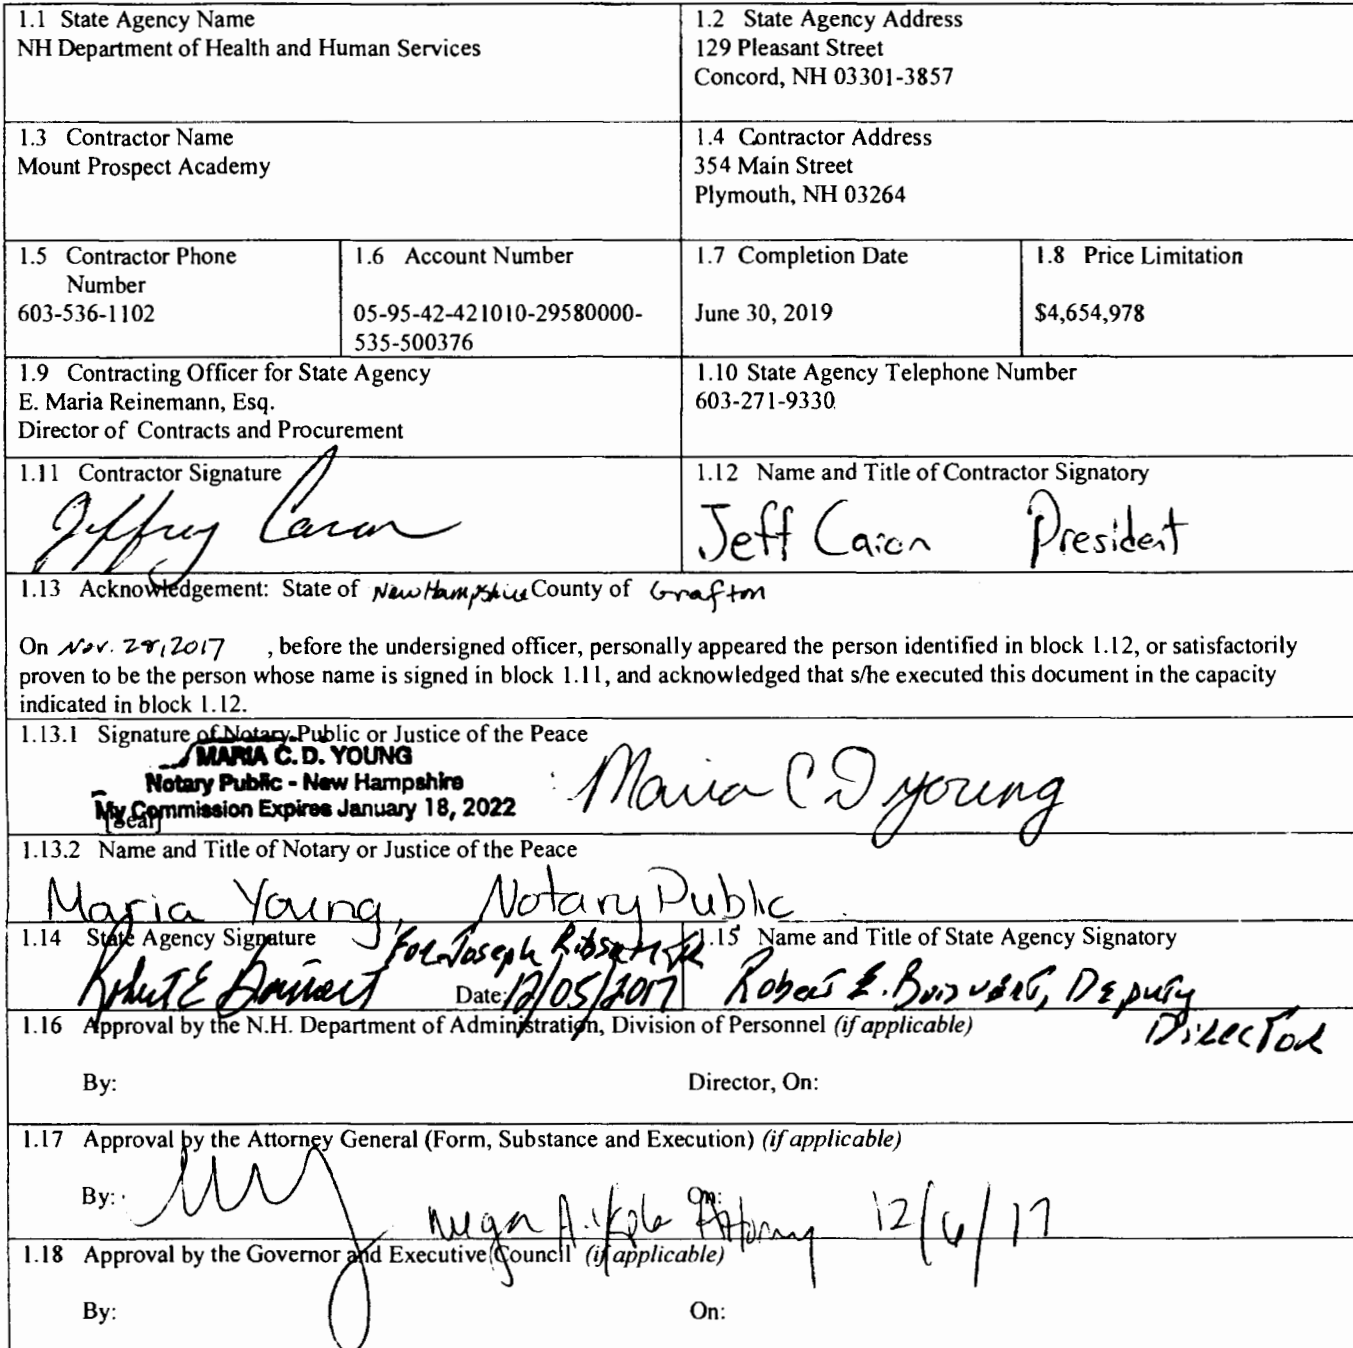 1.1 State Agency Name
NH Department of Health and Human Services
1.2 State Agency Address
129 Pleasant Street
Concord, NH 03301-3857
1.3 Contractor Name
Mount Prospect Academy
1.4 Contractor Address
354 Main Street
Plymouth, NH 03264
1.5 Contractor Phone
Number
603-536-1102
1.6 Account Number
05-95-42-421010-29580000-
535-500376
1.7 Completion Date
June 30, 2019
1.8 Price Limitation
$4,654,978
1.9 Contracting Officer for State Agency
E. Maria Reinemann, Esq.
Director of Contracts and Procurement
1.10 State Agency Telephone Number
603-271-9330
1.11 Contractor Signature
Jeffrey Caron
1.12 Name and Title of Contractor Signatory
Jeff Caron President
1.13 Acknowledgement: State of New Hampshire County of Grafton
On Nov. 28, 2017 , before the undersigned officer, personally appeared the person identified in block 1.12, or satisfactorily
proven to be the person whose name is signed in block 1.11, and acknowledged that s/he executed this document in the capacity
indicated in block 1.12.
1.13.1 Signature of Notary Public or Justice of the Peace
MARIA C. D. YOUNG
Notary Public - New Hampshire
My Commission Expires January 18, 2022
[Seal]
Maria C D Young
1.13.2 Name and Title of Notary or Justice of the Peace
Maria Young, Notary Public
1.14 State Agency Signature
For Joseph
Robert E
Date: 12/05/2017
1.15 Name and Title of State Agency Signatory
Robert E. Boisvert, Deputy
Director
1.16 Approval by the N.H. Department of Administration, Division of Personnel (if applicable)
By: Director, On:
1.17 Approval by the Attorney General (Form, Substance and Execution) (if applicable)
By: On:
Attorney 12/6/17
1.18 Approval by the Governor and Executive Council (if applicable)
By: On: